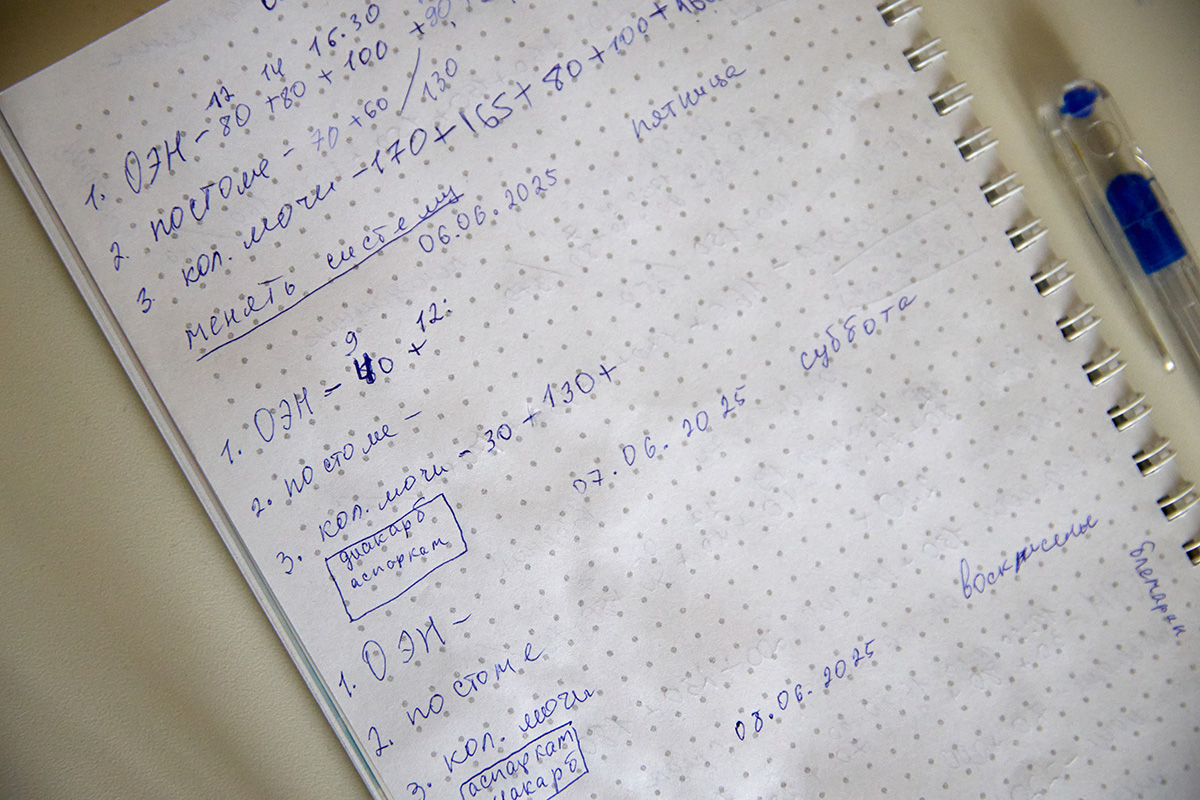 12 14 16.30
1. ОЭН - 80 +80 + 100 +90
2. по стоме - 70 +60 / 130
3. кол. мочи - 170 + 165 + 80 + 100 +
менять системы
06.06.2025 пятница
9 12:
1. ОЭН - 40 +
2. по стоме -
3. кол. мочи - 30 + 130 +
диакарб
аспаркам
07.06.2025 суббота
1. ОЭН -
2. по стоме
3. кол. мочи
аспаркам
диакарб
08.06.2025 воскрисенье
блемарен